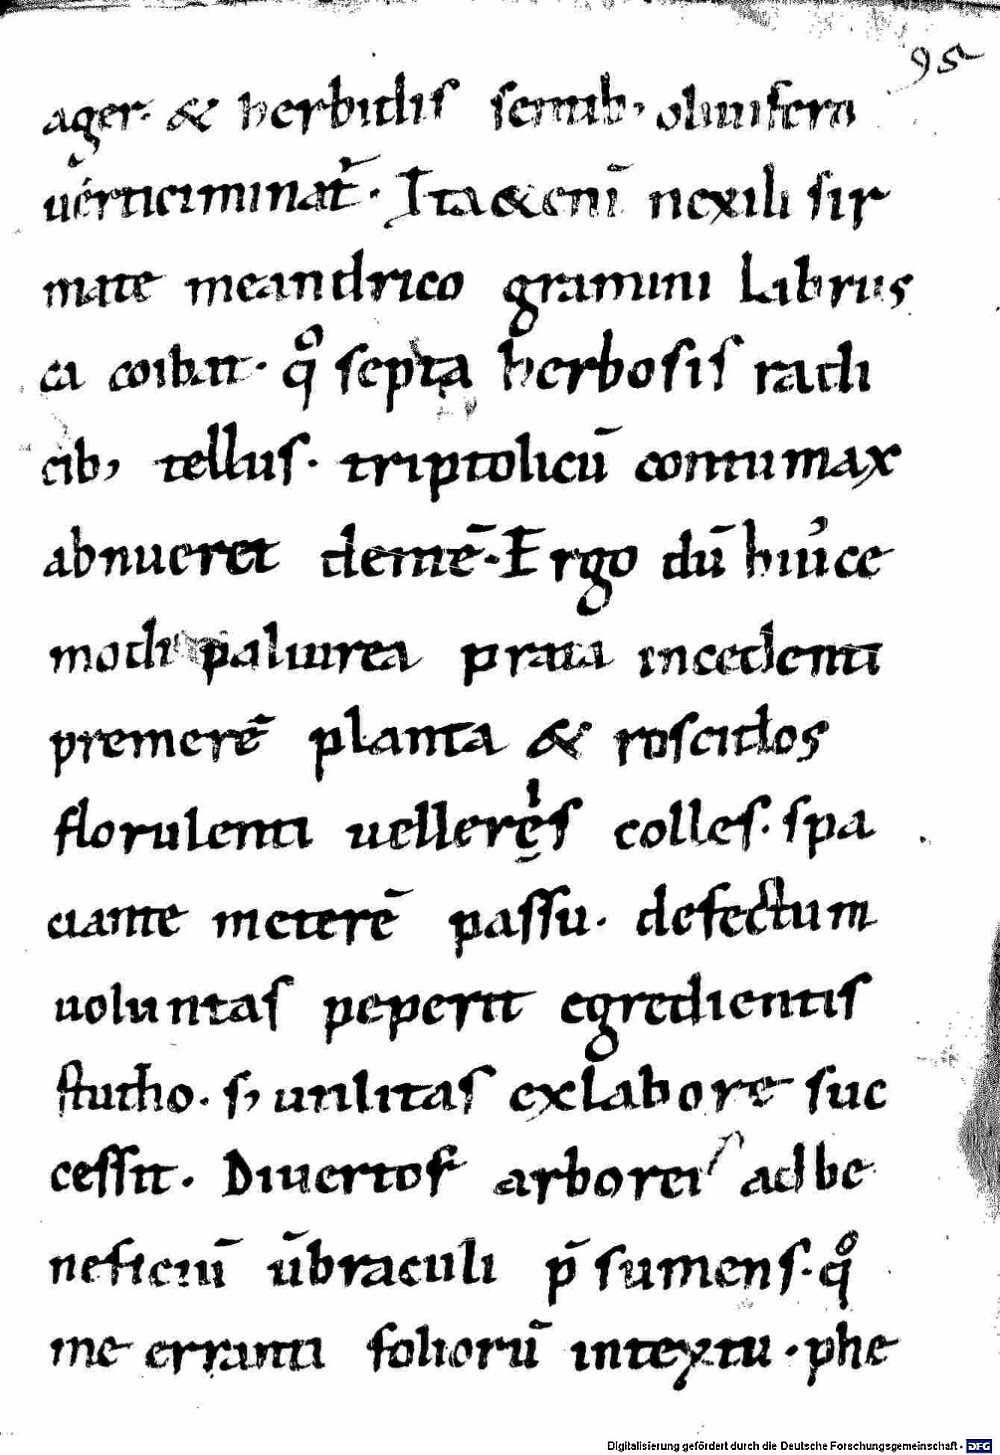 95
ager. & herbidis senub; oliuifera
uerticiminat̄. Ita & eni̅ nexili sir
mate meandrico gramini labrus
ca coibat. qͦ septa herbosis radi
cib; tellus. triptolicu̅ contumax
abnueret deme̅. Ergo du̅ huice
modi paliurea prata incedenti
premere̅ planta & roscidos
florulenti uellerẹs colles. spa
ciante metere̅ passu. defectum
uoluntas peperit egredientis
studio. s; utilitas exlabore suc
cessit. Diuertor arborei adbe
neficiu̅ u̅braculi p̄sumens. qͦ
me erranti folioru̅ intextu. phe
Digitalisierung gefördert durch die Deutsche Forschungsgemeinschaft - DFG